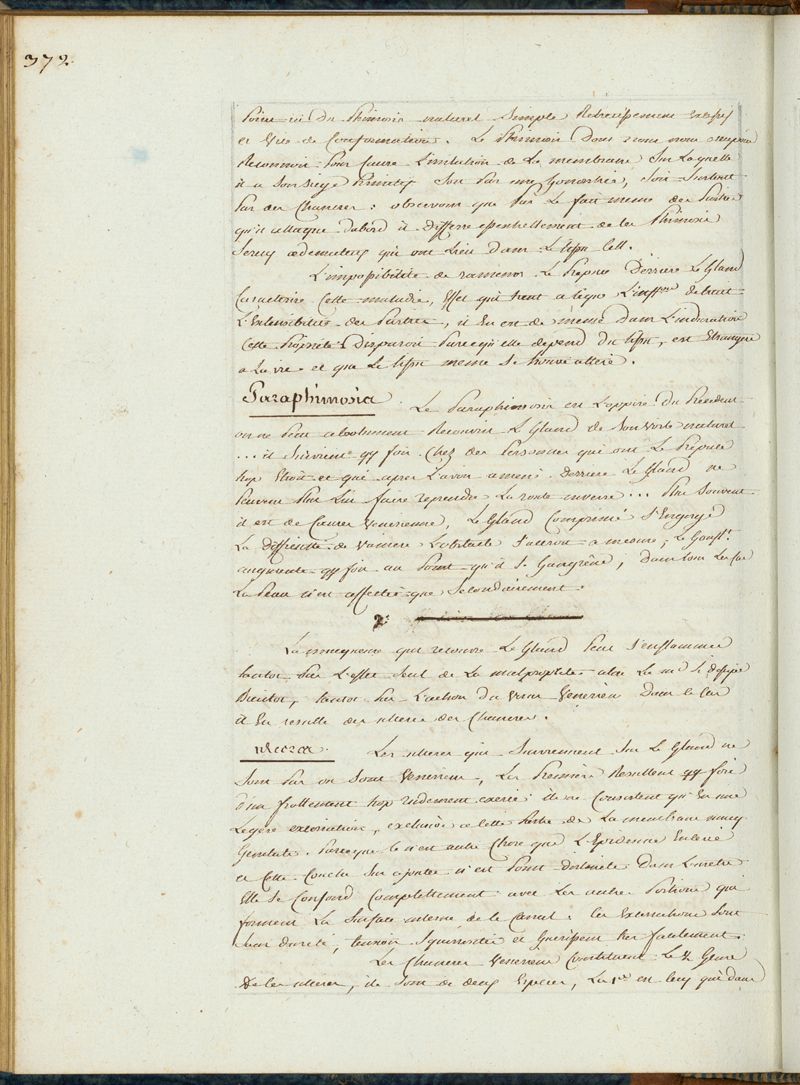 372
du Phimosis naturel simple Retrecissement
et Vice de Conformation. Le Phimosis dont nous nous
Reconnoit Pour Cause L'irritation de La membrane Sur Laquelle
il a Son Siege Primitif Soit Par une Gonorrhée, Soit Surtout
Par des Chancres: observons que Par Le fait meme des Parties
qu'il attaque dabord il differe essentiellement de ces Phimosis
oedemateux qui ont Lieu dans Le tissu Cell.
L'impossibilité de ramener Le Prepuce Derriere Le Gland
Caracterise Cette maladie, Effet qui tient a ceque L'inffon detruit
L'Extensibilité des Parties, il En est de meme dans L'induration
Cette Propriété Disparoit Parcequ'elle depend du tissu, est Etrangere
a La vie et que Le tissu meme Se trouve altéré.
Paraphimosis Le Paraphimosis est L'opposé du Precedent
on ne Peut absolument Recouvrir Le Gland de Son Voile naturel
... il Survient qq fois Chez des Personnes qui ont Le Prepuce
trop Etroit et qui apres L'avoir amené Derriere Le Gland ne
Peuvent Plus Lui faire reprendre La route inverse ... Plus Souvent
il est de Cause Venerienne, Le Gland Comprimé S'Engorge
La difficulté de Vaincre L'obstacle S'accroit a mesure, Le Gonflt
augmente qq fois au Point qu'il Se Gangrène, dans tous Les Cas
La Peau n'est affectée que Secondairement.
2°
La muqueuse qui recouvre Le Gland Peut S'enflammer
tantot Par L'effet Seul de La malpropreté alors Le mal Se dissipe
Bientot, tantot Par L'action du Virus Venerien Dans ce Cas
il En resulte des ulceres des Chancres.
ulceres. Les ulceres qui Surviennent Sur Le Gland ne
Sont Pas ou Sont Venerien, Les Premiers Resultent qq fois
d'un frottement trop rudement exercé: ils ne Consistent qu'En une
Legere excoriation, exclusive a cette Partie de La membrane muqu
Genitale. Parceque ce n'est autre Chose que L'Epiderme Enlevé
et Cette Couche Sur ajoutée n'est Point distincte Dans L'uretre
Elle Se Confond Complettement avec Les autres Portions qui
forment La Surface interne de ce Canal. Ces Excoriations Sont
Sans dureté, et Guerissent tres facilement.
Les Chancres Venerien Constituent Le 2 Genre
De ces ulceres, ils Sont de deux Especes, La 1re est Ceux qui dans